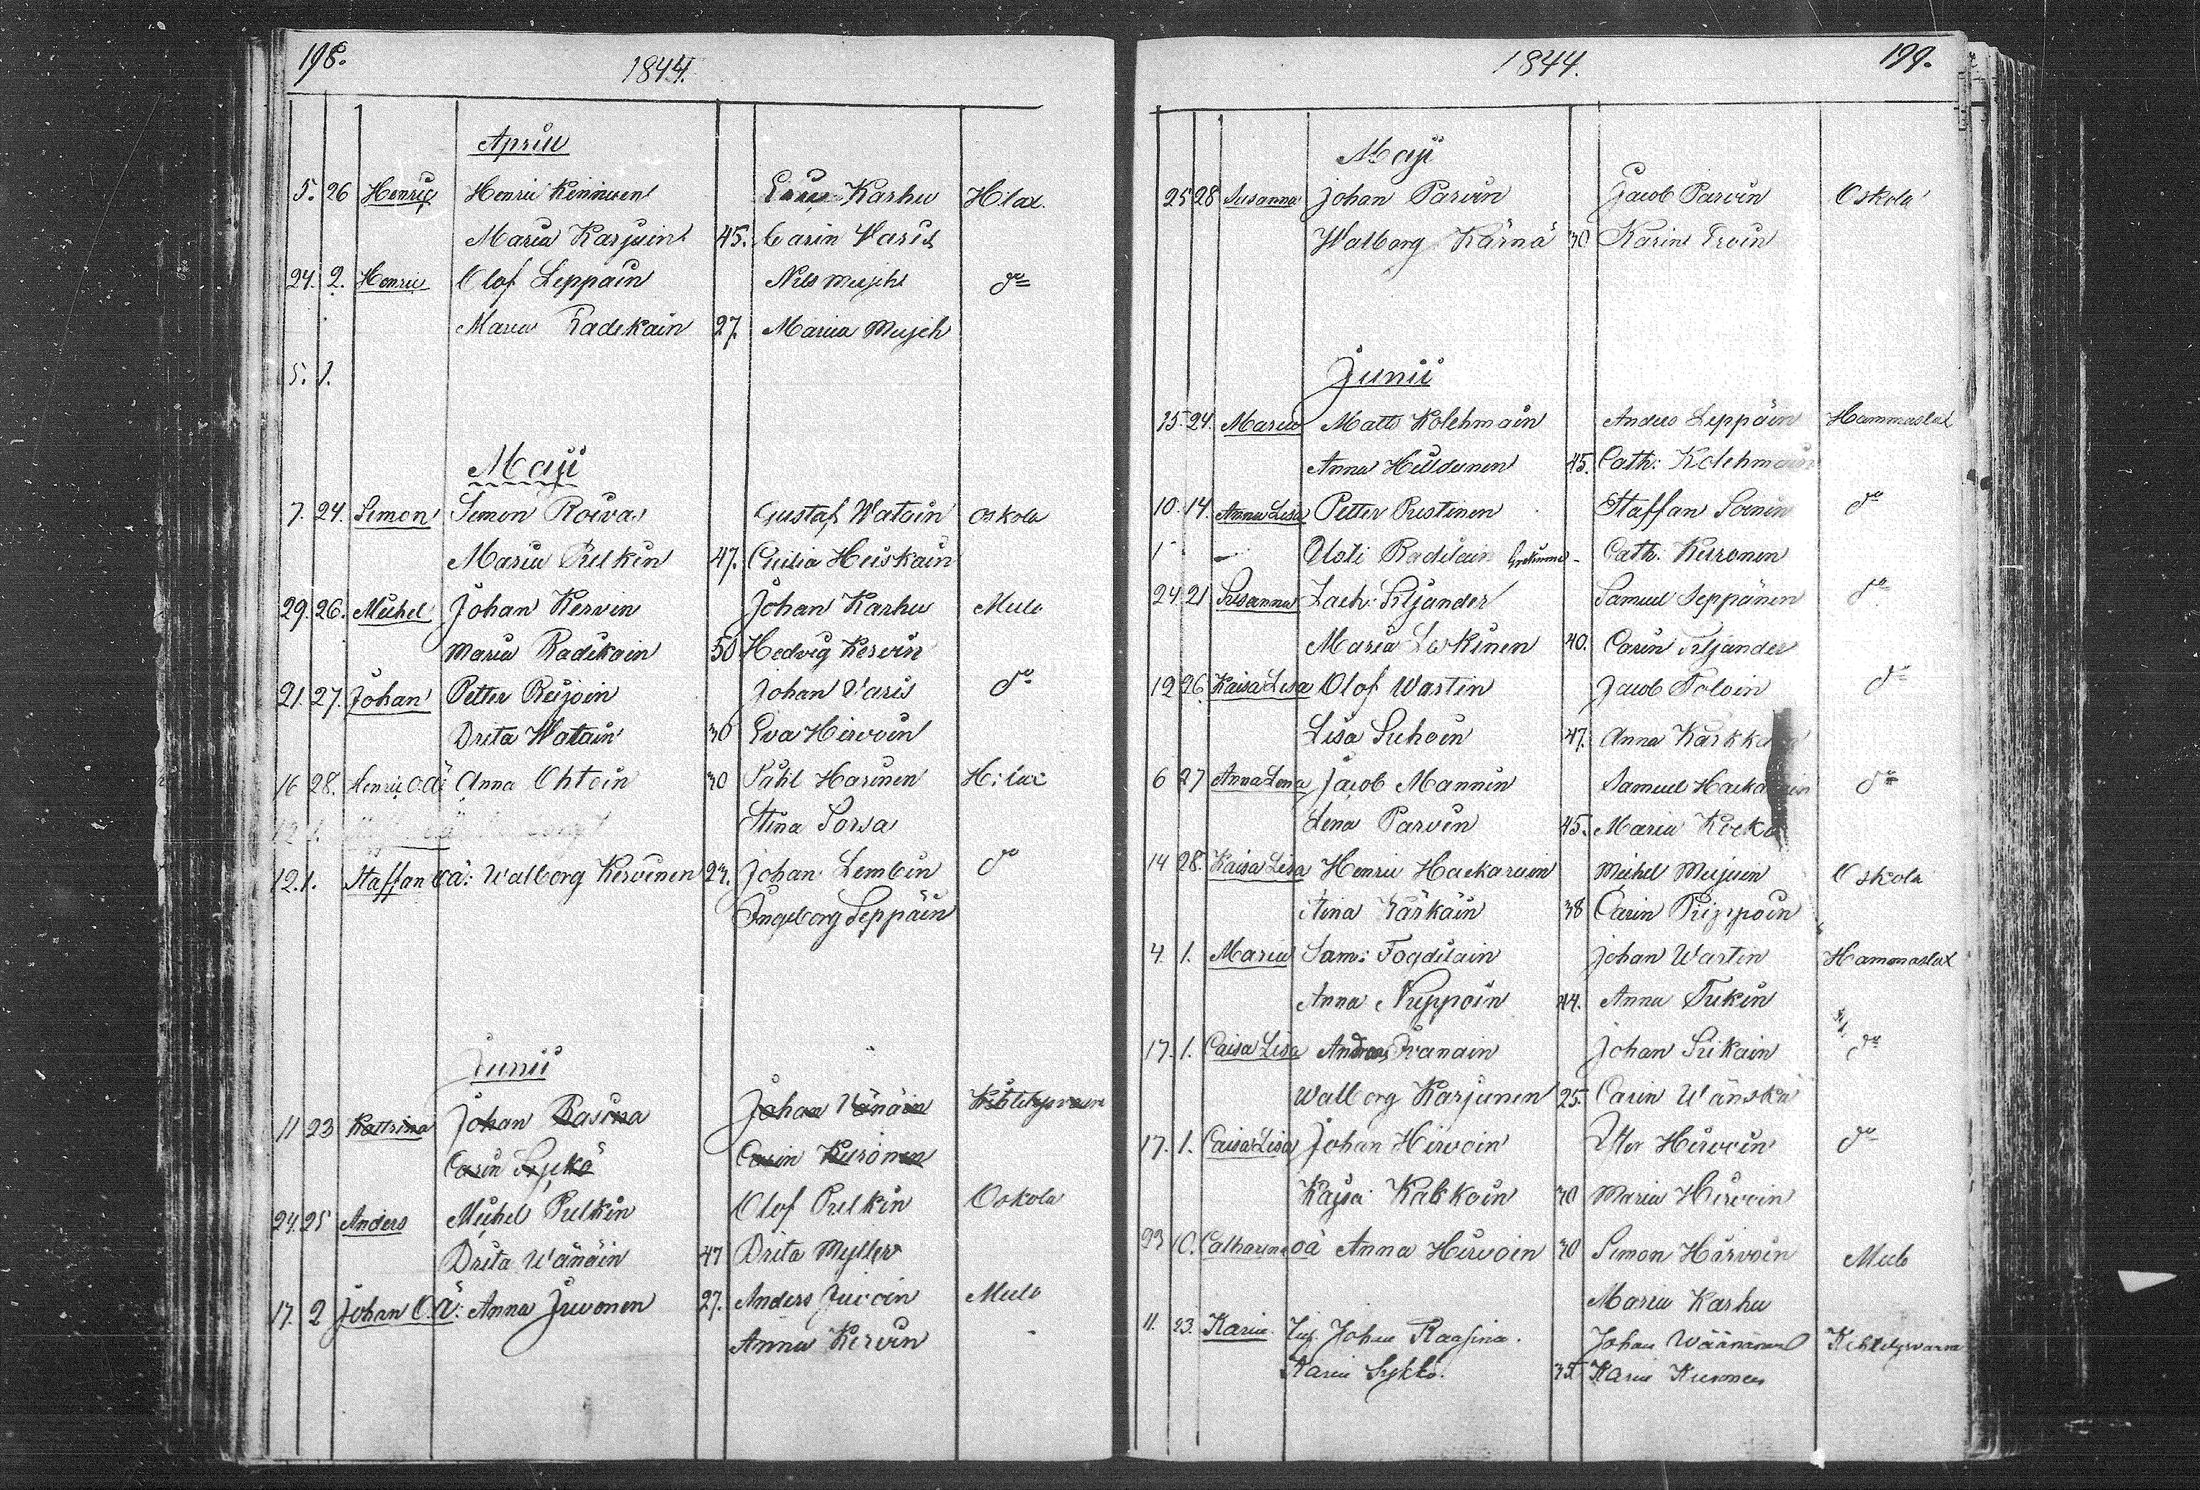 198.
1844.
Aprill
5. 26 Henric Henric Kinnunen Karhu H:lax.
Maria Karjuin 45. Carin Varis
24. 2. Henric Olof Leppäin Nils Mujeh do
Maria Radikain 27. Maria Mujeh
5. 1.
Maji
7. 24. Simon Simon Roivas Gustaf Watain Oskola
Maria Pulkin 47. Cecilia Heiskain
29. 26. Michel Johan Kervin Johan Karhu Mulo
Maria Radikain 50 Hedvig Kervin
21. 27. Johan Petter Reijoin Johan Varis do
Brita Watain 30 Eva Hirvoin
16 28. Henric o.ä: Anna Ohtoin 30 Påhl Harinen H:lax
12. 1. Stina Sorsa
12. 1. Staffan oä: Walborg Kervinen 27. Johan Lembin do
Ingeborg Leppäin
Junii
11 23 Kattrina Johan Rasina Johan Wänäin Kihtelysvaara
Carin Sykö Carin Kuronen
24. 25 Anders Michel Pulkin Olof Pulkin Oskola
Brita Wänäin 47 Brita Myller
17. 2 Johan O.Ä: Anna Juvonen 27. Anders Juvoin Mulo
Anna Kervin
1844.
199.
Maji
25 28 Susanna Johan Parvin Jacob Parvin Oskola
Walborg Kärnä 30 Karin Ervin
Junii
15. 24. Maria Matts Kolehmain Anders Leppäin Hammaslax
Anna Hildunen 45. Cath: Kolehmain
10. 14. Anna Lisa Petter Pustinen Staffan Soinin do
1 Radikain Cath. Kuronen
24. 21 Susanna Zach: Siljander Samuel Seppänen do
Maria Leskinen 40. Carin Siljander
12 26 Kaisa Lisa Olof Wastin Jacob Toloin do
Lisa Suhoin 47. Anna
6 27 Anna Lena Jacob Mannin Samuel do
Lena Parvin 45. Maria
14 28. Kaisa Lisa Henric Hackarain Michel Mujuin Oskola
Stina Käskäin 38 Carin Trippoin
4. 1. Maria Sam: Fogdilain Johan Wartin Hammaslax
Anna Nuppoin 44. Anna Tukin
17. 1. Caisa Lisa Anders Ivanain Johan Sikain do
Walborg Karjunen 25. Carin Wänskä
17. 1. Caisa Lisa Johan Hirvoin Hirvoin do
Kajsa Kakkoin 30 Maria Hirvoin
23 10. Catharina oä Anna Hirvoin 30 Simon Härvoin Mulo
Maria Karhu
11. 23. Karin Johan Raasina. Johan Wäänänen Kihtelysvaara
Karin Sykkö. 35 Karin Kuronen